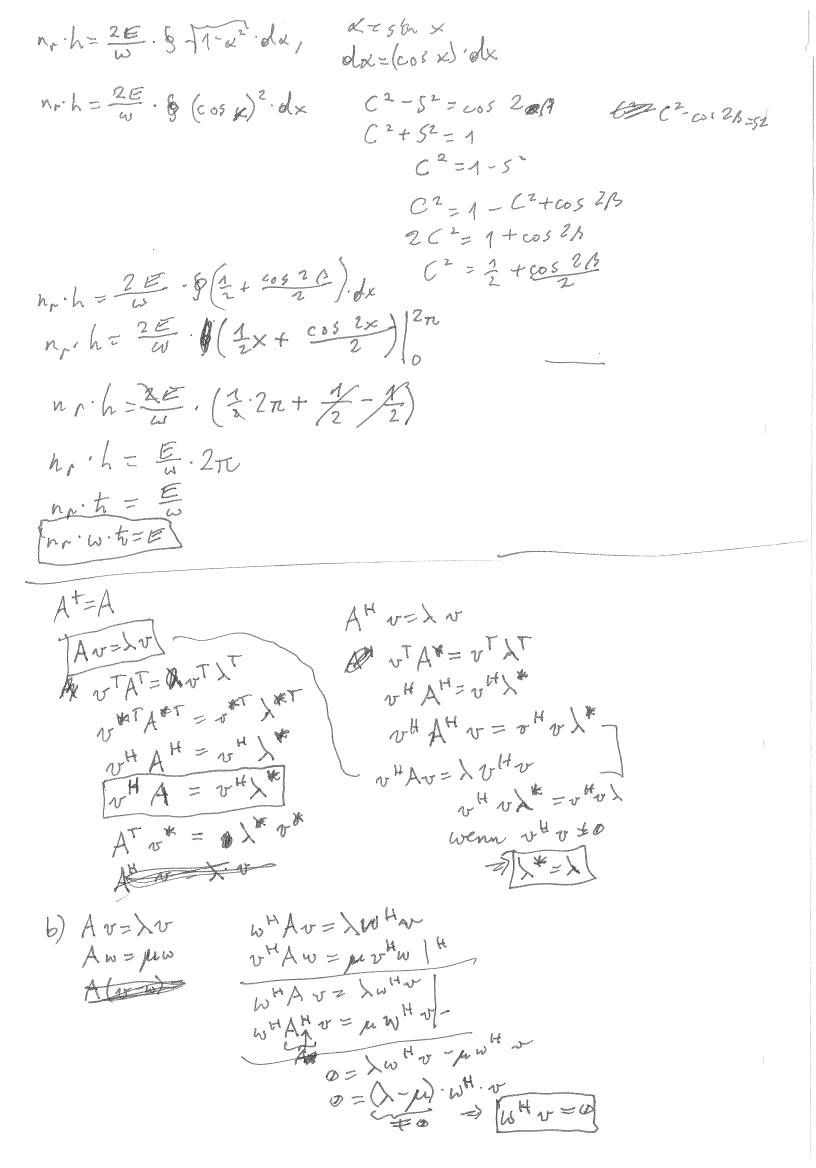 n_r · h = 2E/ω · ∮ √(1-α²) · dα,
α = sin x
dα = (cos x) · dx
n_r · h = 2E/ω · ∮ (cos x)² · dx
C² - S² = cos 2β
C² - cos 2β = S²
C² + S² = 1
C² = 1 - S²
C² = 1 - C² + cos 2β
2C² = 1 + cos 2β
C² = 1/2 + cos 2β/2
n_r · h = 2E/ω · ∮ (1/2 + cos 2β/2) · dx
n_r · h = 2E/ω · (1/2 x + cos 2x/2) |₀^2π
n_r · h = 2E/ω · (1/2 · 2π + 1/2 - 1/2)
n_r · h = E/ω · 2π
n_r · ħ = E/ω
n_r · ω · ħ = E
A† = A
Av = λv
v^T A^T = v^T λ^T
v*^T A*^T = v*^T λ*^T
v^H A^H = v^H λ*
v^H A = v^H λ*
A^T v* = λ* v*
A^H v = λ · v
A^H v = λ v
v^T A* = v^T λ^T
v^H A^H = v^H λ*
v^H A^H v = v^H v λ*
v^H A v = λ v^H v
v^H v λ* = v^H v λ
wenn v^H v ≠ 0
⇒ λ* = λ
b) A v = λ v
A w = μ w
A(v-w)
w^H A v = λ w^H v
v^H A w = μ v^H w |^H
w^H A v = λ w^H v
w^H A^H v = μ w^H v | -
A
0 = λ w^H v - μ w^H v
0 = (λ - μ) · w^H · v
≠ 0
⇒ w^H v = 0